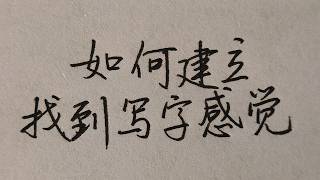 如何建立
找到写字感觉